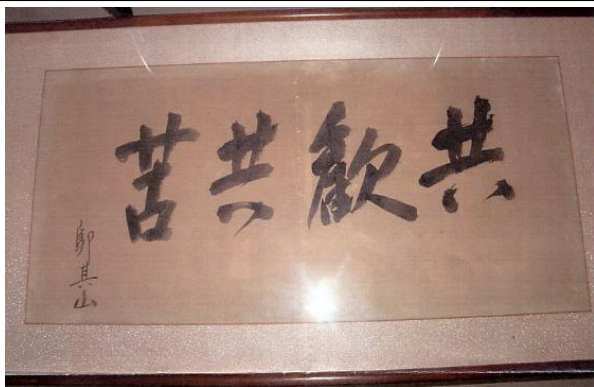 共歡共苦
鄔其山